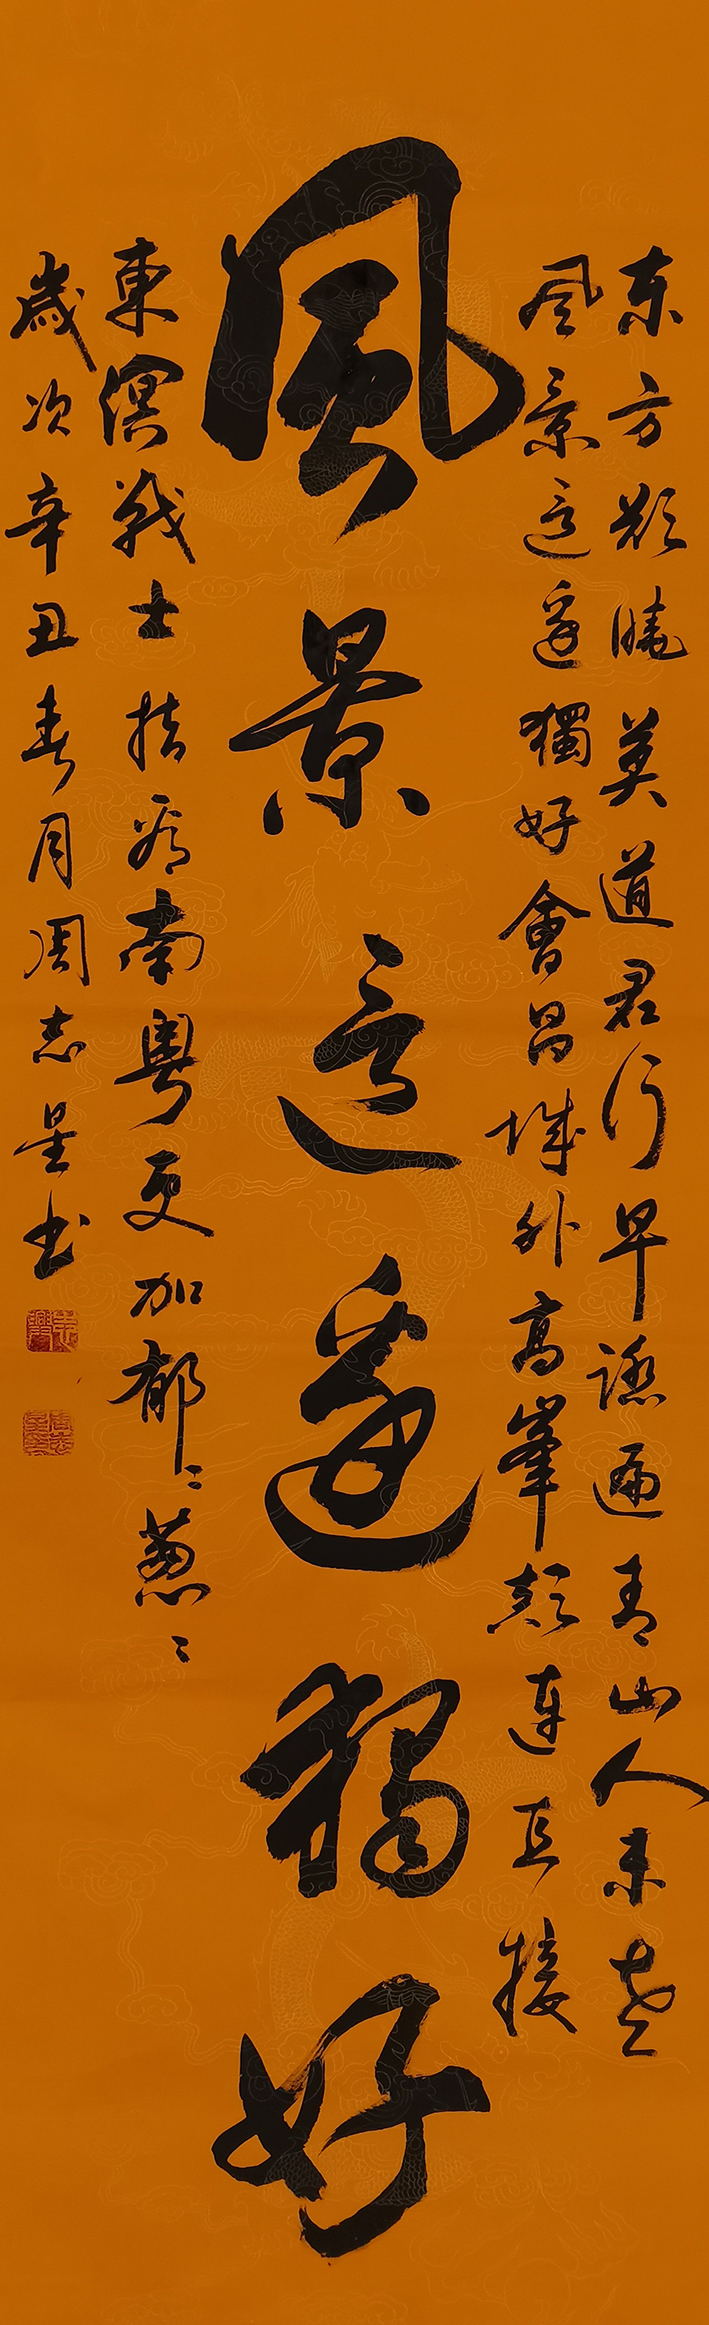 东方欲曉莫道君行早踏遍青山人未老
风景這邊獨好會昌城外高峯颠连直接
風景這邊獨好
東溟战士指看南粤更加郁〻葱〻
歲次辛丑春月周志星书